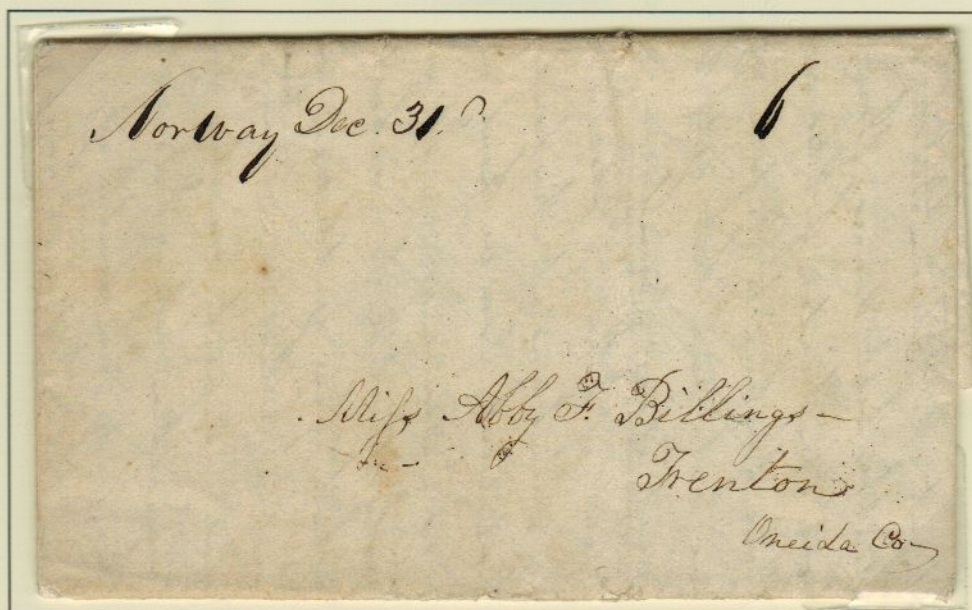 Norway Dec. 31. 6
Miss Abby F. Billings
Trenton
Oneida Co